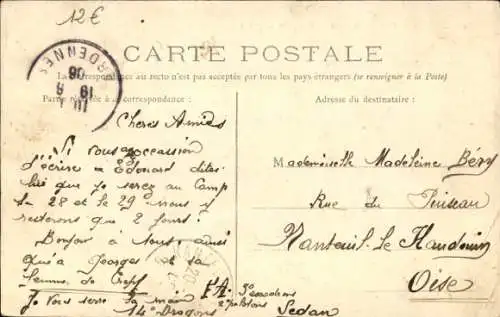 12€
CARTE POSTALE
La correspondance au recto n'est pas acceptée par tous les pays étrangers (se renseigner à la Poste)
Partie réservée à la correspondance :
Adresse du destinataire :
ARDENNES
19 06
Cheres Amies
Si vous occassion
d'écrire a Edouard dites
lui que je serez au Camp
le 28 et le 29 nous y
resterons que 2 jours.
Bonjour à tous ainsi
qu'a Georges et sa
femme de
Je vous serre la main
14e Dragons
3e escadrons
27
Sedan
Mademoiselle Madeleine Béry
Rue du Puiseau
Nanteuil-le-Haudouin
Oise